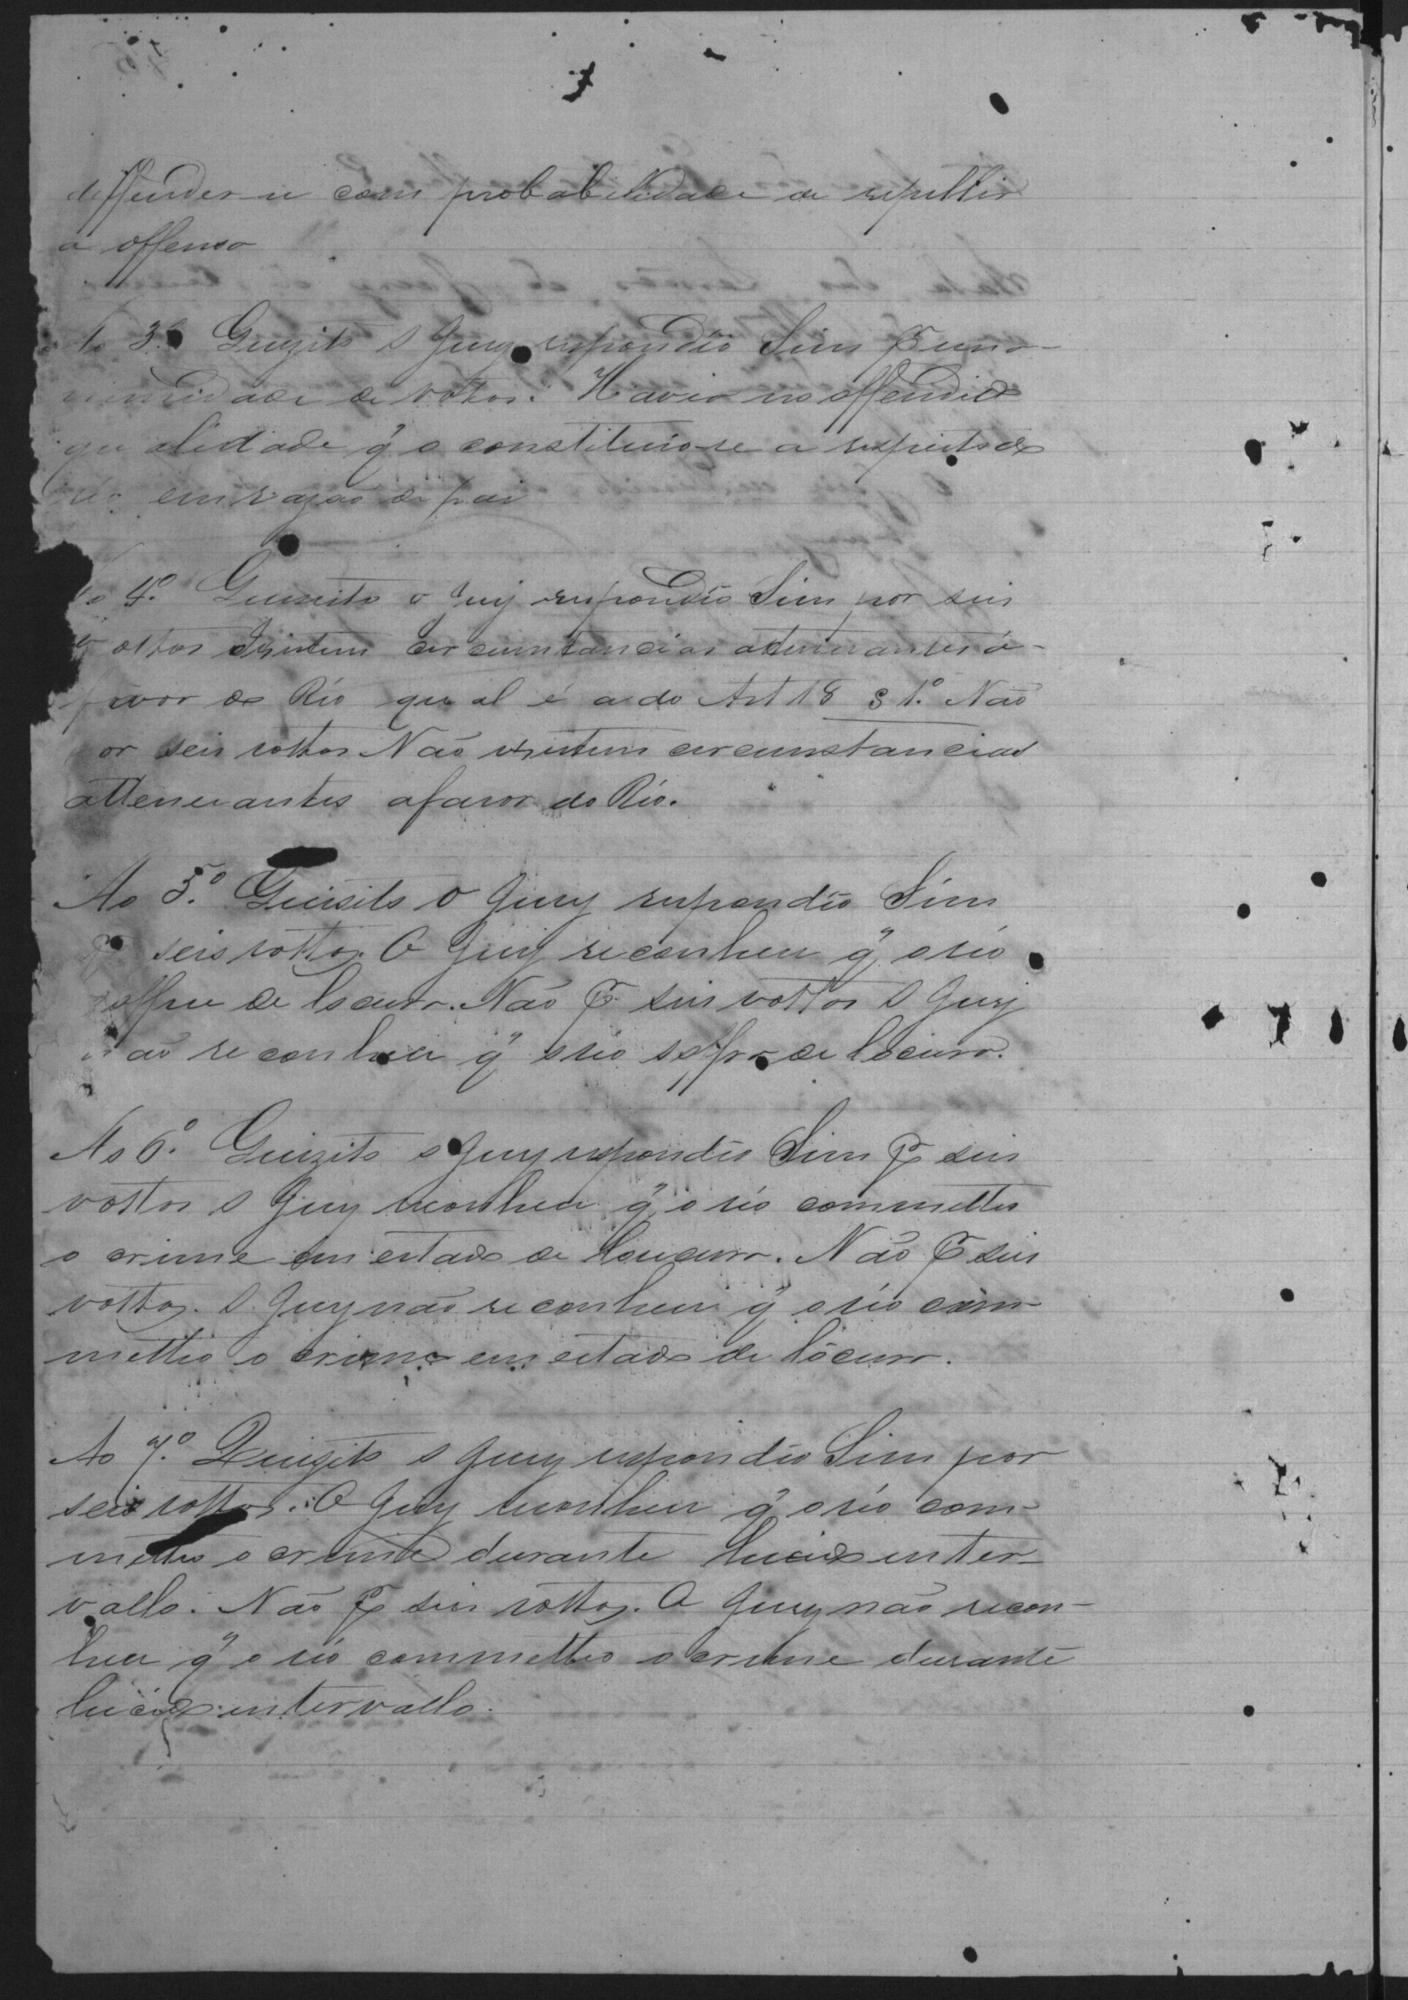 deffender se com probabilidade de repellir
a offensa
Ao 3º Quizito o Jury respondeo Sim P una-
nimidade de vottos: Havia no offendido
qualidade q̃ o constituia-se a respeito do
réo em razao de pai
Ao 4º Quezito o Jury respondeo Sim por seis
vottos Existem circumstancias attenuantes á
favor do Réo qual é a do Art 18 § 1º. Não
por seis vottos Não existem circumstancias
attenuantes a favor do Réo.
Ao 5º. Quisito O Jury respondeo Sim
P seis vottos. O Jury reconheceu q̃ o réo
soffre de locura. Não P seis vottos O Jury
não reconheceu q̃ o réo soffre de locura.
Ao 6º. Quizito o Jury respondeo Sim P seis
vottos O Jury reconheceu q̃ o réo commetteo
o crime em estado de loucura. Não P seis
vottos. O Jury não reconheceu q̃ o réo com-
metteo o crime em estado de lócura.
Ao 7º. Quizito o Jury respondeo Sim por
seis vottos. O Jury reconheceu q̃ o réo com-
metteo o crime durante lucido inter-
vallo. Não P seis vottos. O Jury não recon-
heceu q̃ o réo commetteo o crime durante
lucido intervallo.